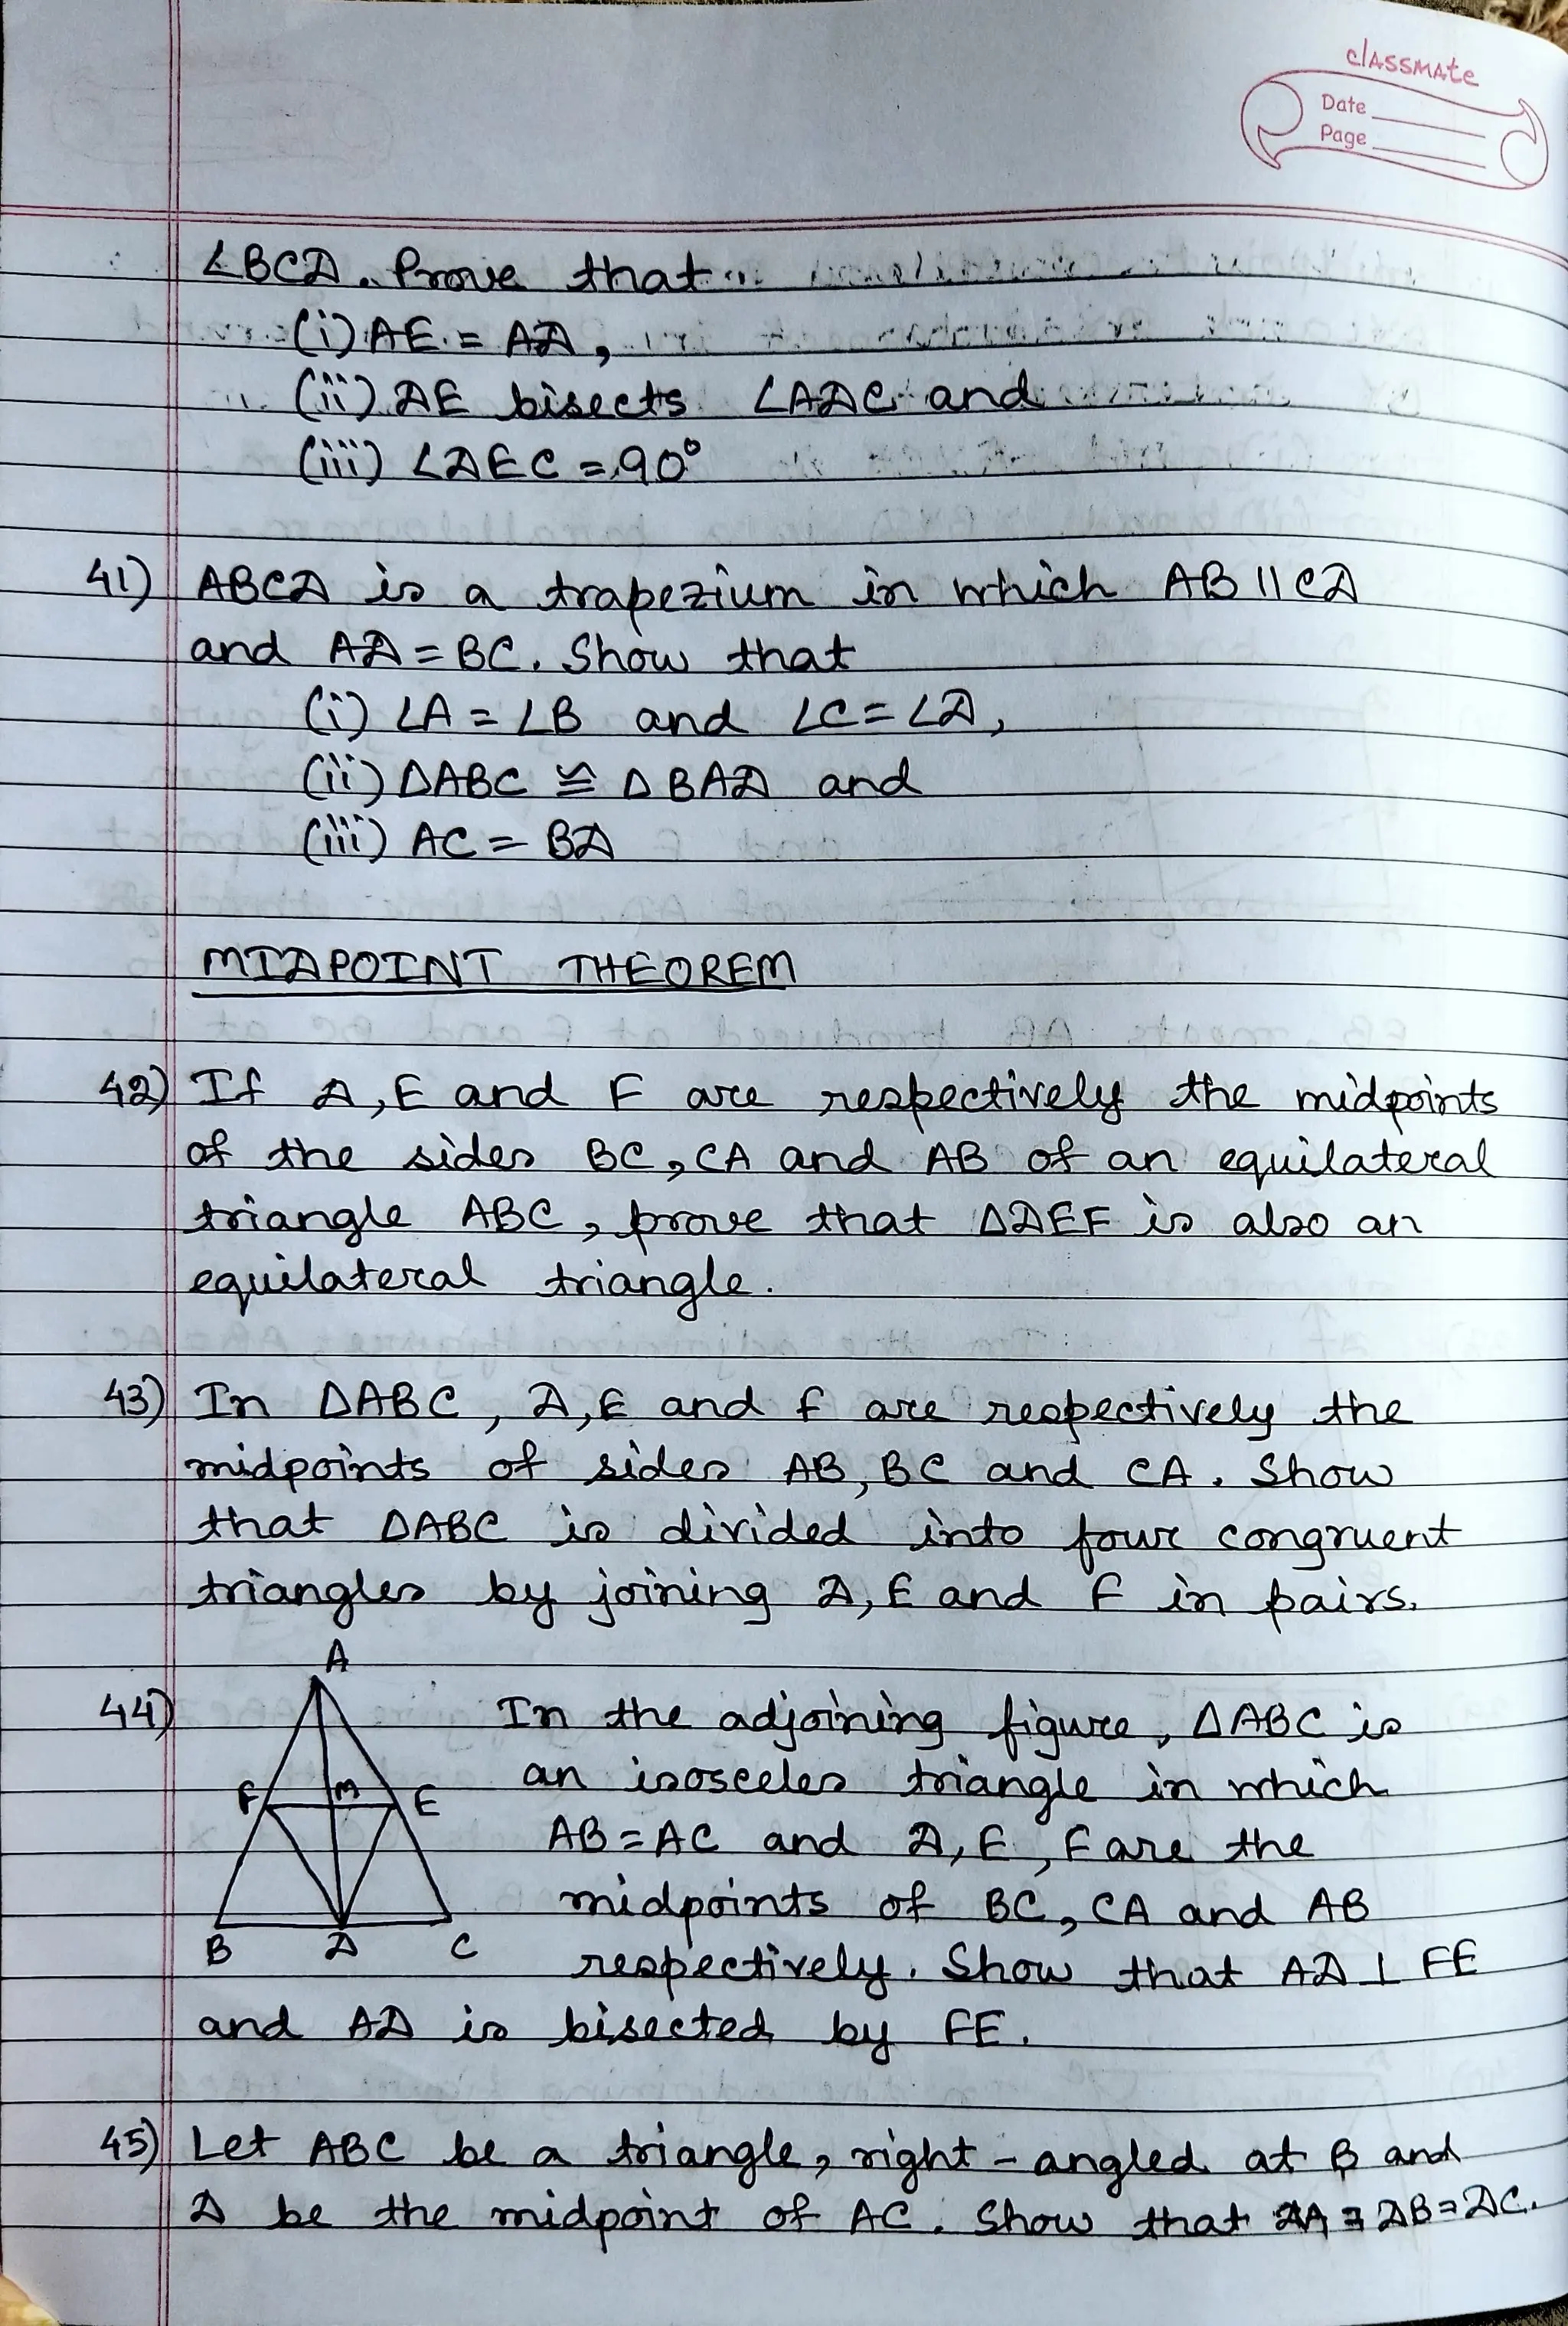 classmate
Date
Page
∠BCD. Prove that
(i) AE = AD,
(ii) DE bisects ∠ADC and
(iii) ∠DEC = 90°
41) ABCD is a trapezium in which AB || CD
and AD = BC. Show that
(i) ∠A = ∠B and ∠C = ∠D,
(ii) ΔABC ≅ ΔBAD and
(iii) AC = BD
MIDPOINT THEOREM
42) If D, E and F are respectively the midpoints
of the sides BC, CA and AB of an equilateral
triangle ABC, prove that ΔDEF is also an
equilateral triangle.
43) In ΔABC, D, E and F are respectively the
midpoints of sides AB, BC and CA. Show
that ΔABC is divided into four congruent
triangles by joining D, E and F in pairs.
A
44) In the adjoining figure, ΔABC is
F M E an isosceles triangle in which
AB = AC and D, E, F are the
midpoints of BC, CA and AB
B D C
respectively. Show that AD ⊥ FE
and AD is bisected by FE.
45) Let ABC be a triangle, right-angled at B and
D be the midpoint of AC. Show that DA = DB = DC.